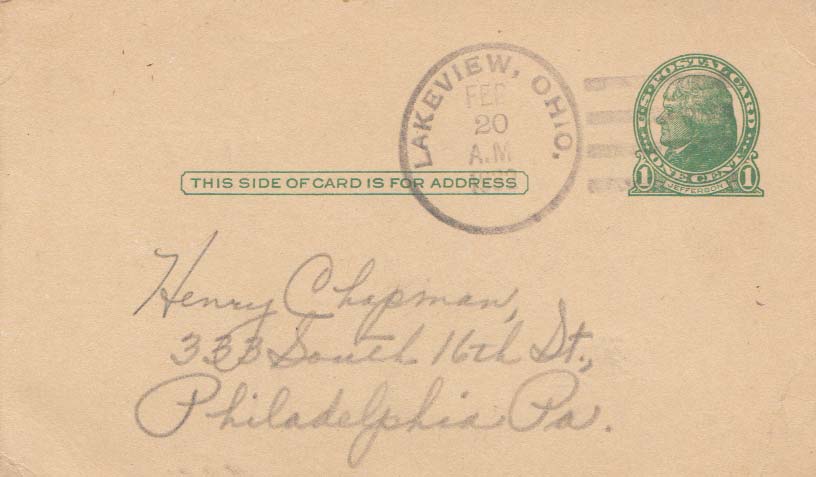 LAKEVIEW, OHIO.
FEB
20
A.M
U.S. POSTAL CARD
ONE CENT
1 JEFFERSON 1
THIS SIDE OF CARD IS FOR ADDRESS
Henry Chapman,
333 South 16th St.,
Philadelphia Pa.